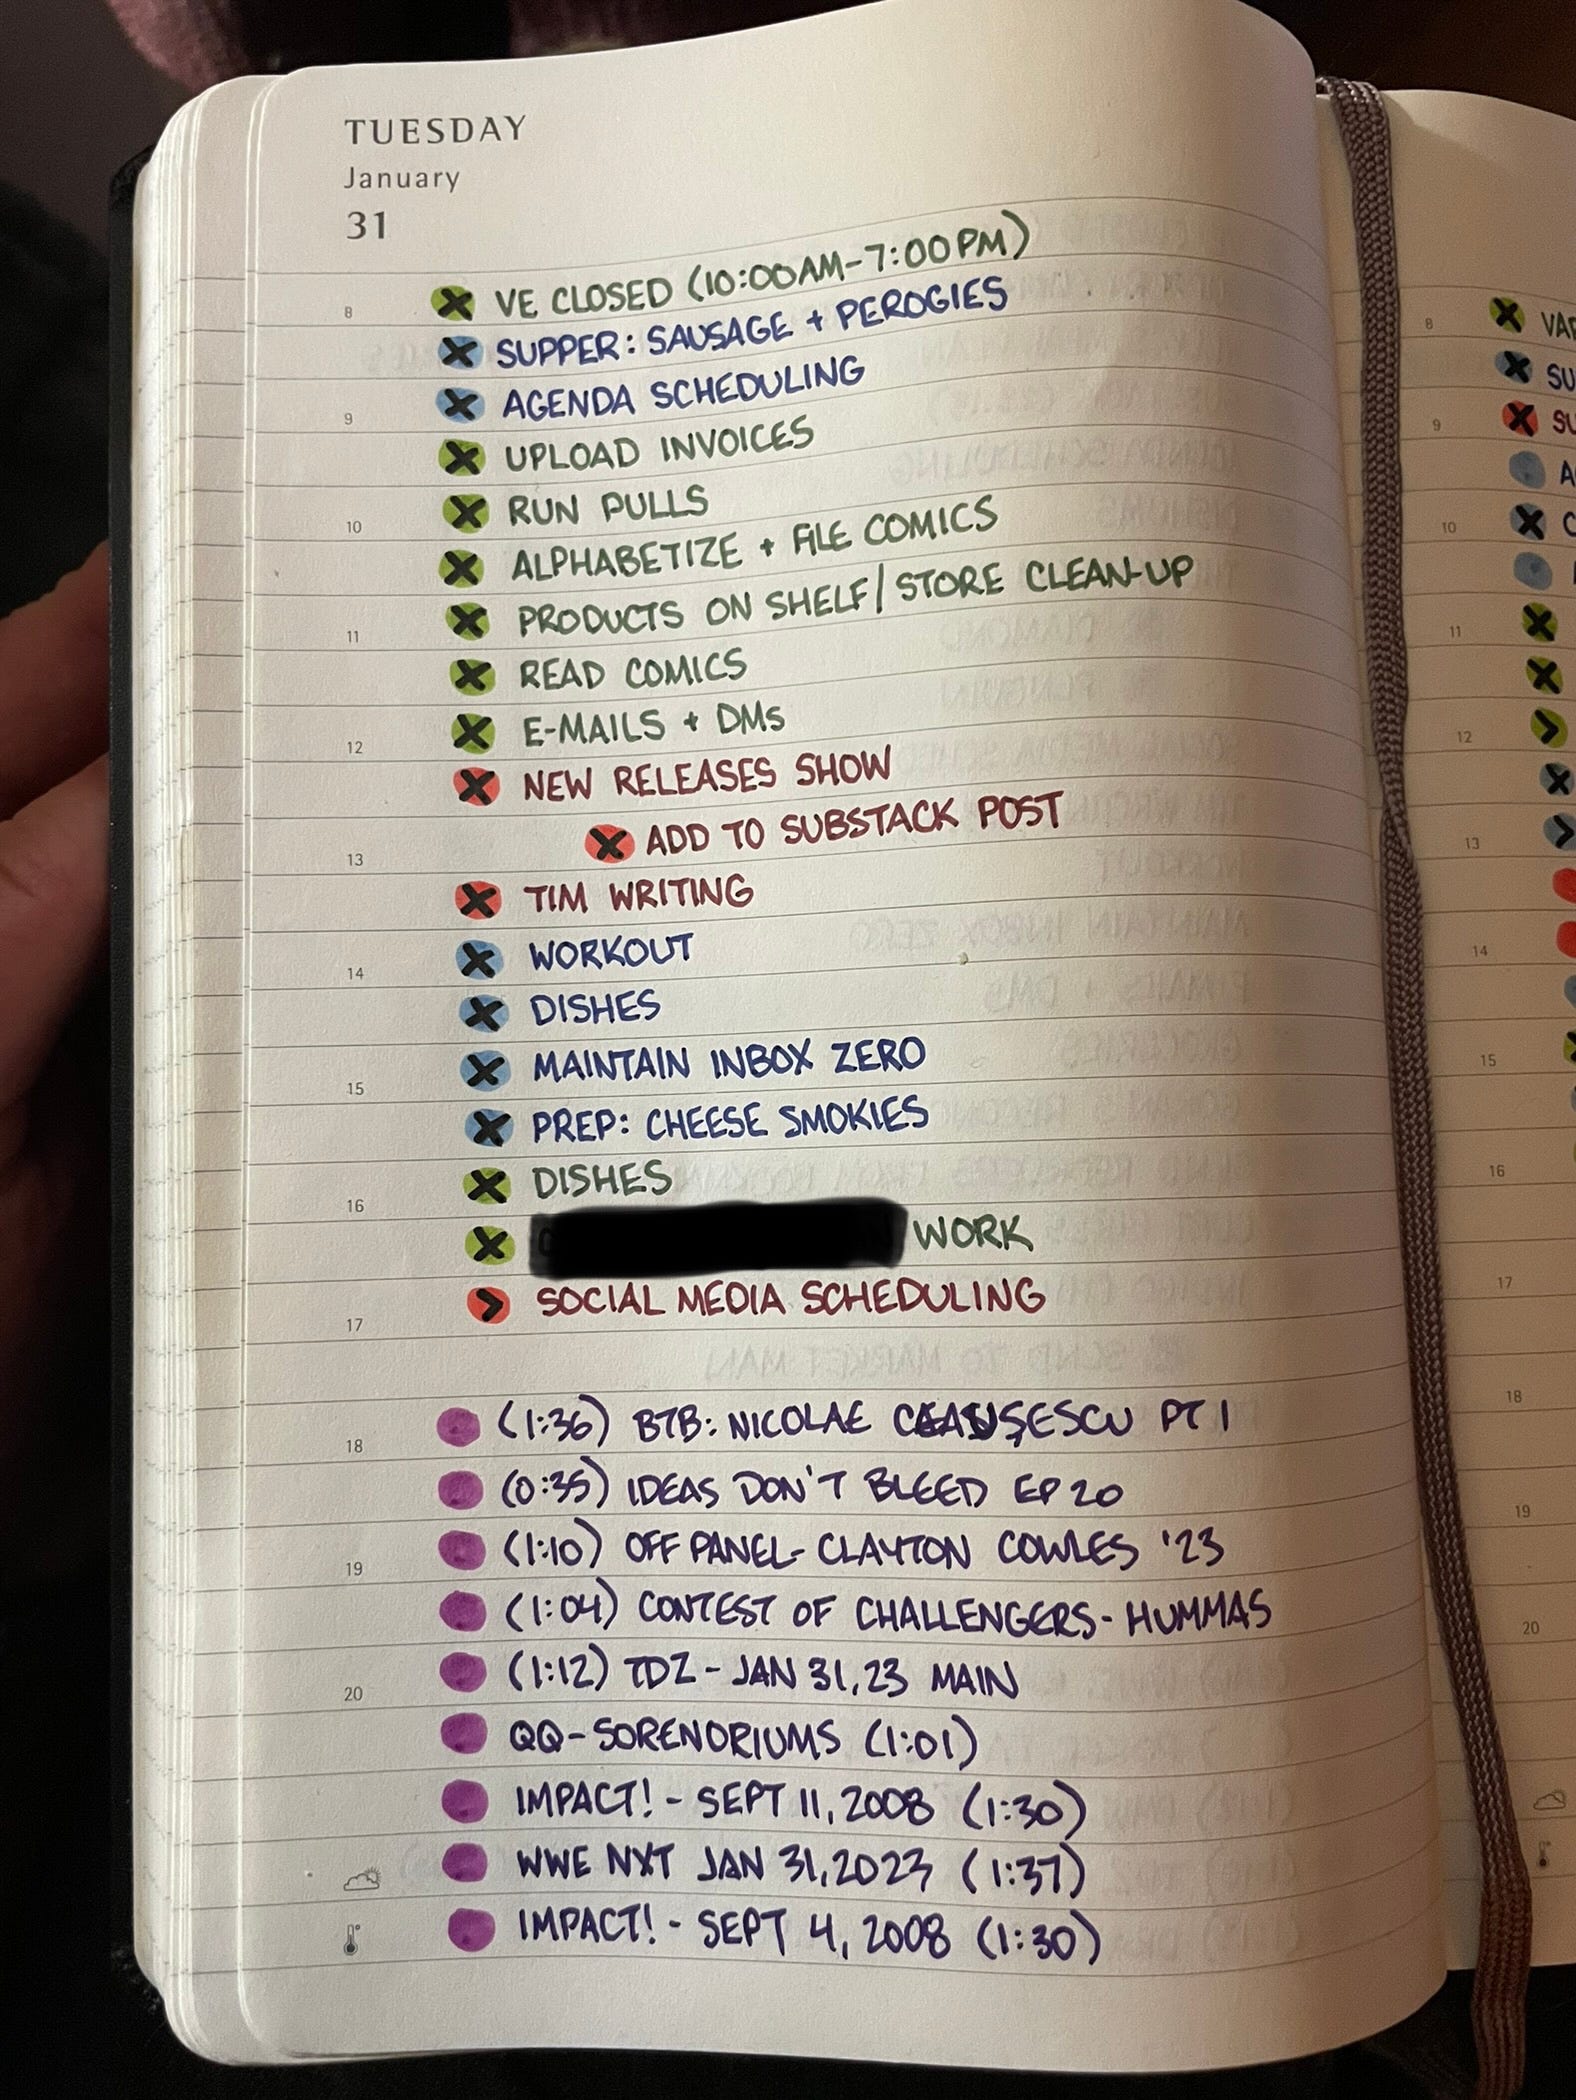 TUESDAY
January
31
8 VE CLOSED (10:00AM-7:00PM)
SUPPER: SAUSAGE + PEROGIES
9 AGENDA SCHEDULING
UPLOAD INVOICES
10 RUN PULLS
ALPHABETIZE + FILE COMICS
11 PRODUCTS ON SHELF/STORE CLEAN-UP
READ COMICS
12 E-MAILS + DMs
NEW RELEASES SHOW
13 ADD TO SUBSTACK POST
TIM WRITING
14 WORKOUT
DISHES
15 MAINTAIN INBOX ZERO
PREP: CHEESE SMOKIES
16 DISHES
WORK
17 SOCIAL MEDIA SCHEDULING
18 (1:36) BTB: NICOLAE PT 1
(0:35) IDEAS DON'T BLEED EP 20
19 (1:10) OFF PANEL- CLAYTON COWLES '23
(1:04) CONTEST OF CHALLENGERS- HUMMAS
20 (1:12) TDZ - JAN 31, 23 MAIN
QQ-SORENORIUMS (1:01)
IMPACT! - SEPT 11, 2008 (1:30)
WWE NXT JAN 31, 2023 (1:37)
IMPACT! - SEPT 4, 2008 (1:30)
8
9
10
11
12
13
14
15
16
17
18
19
20